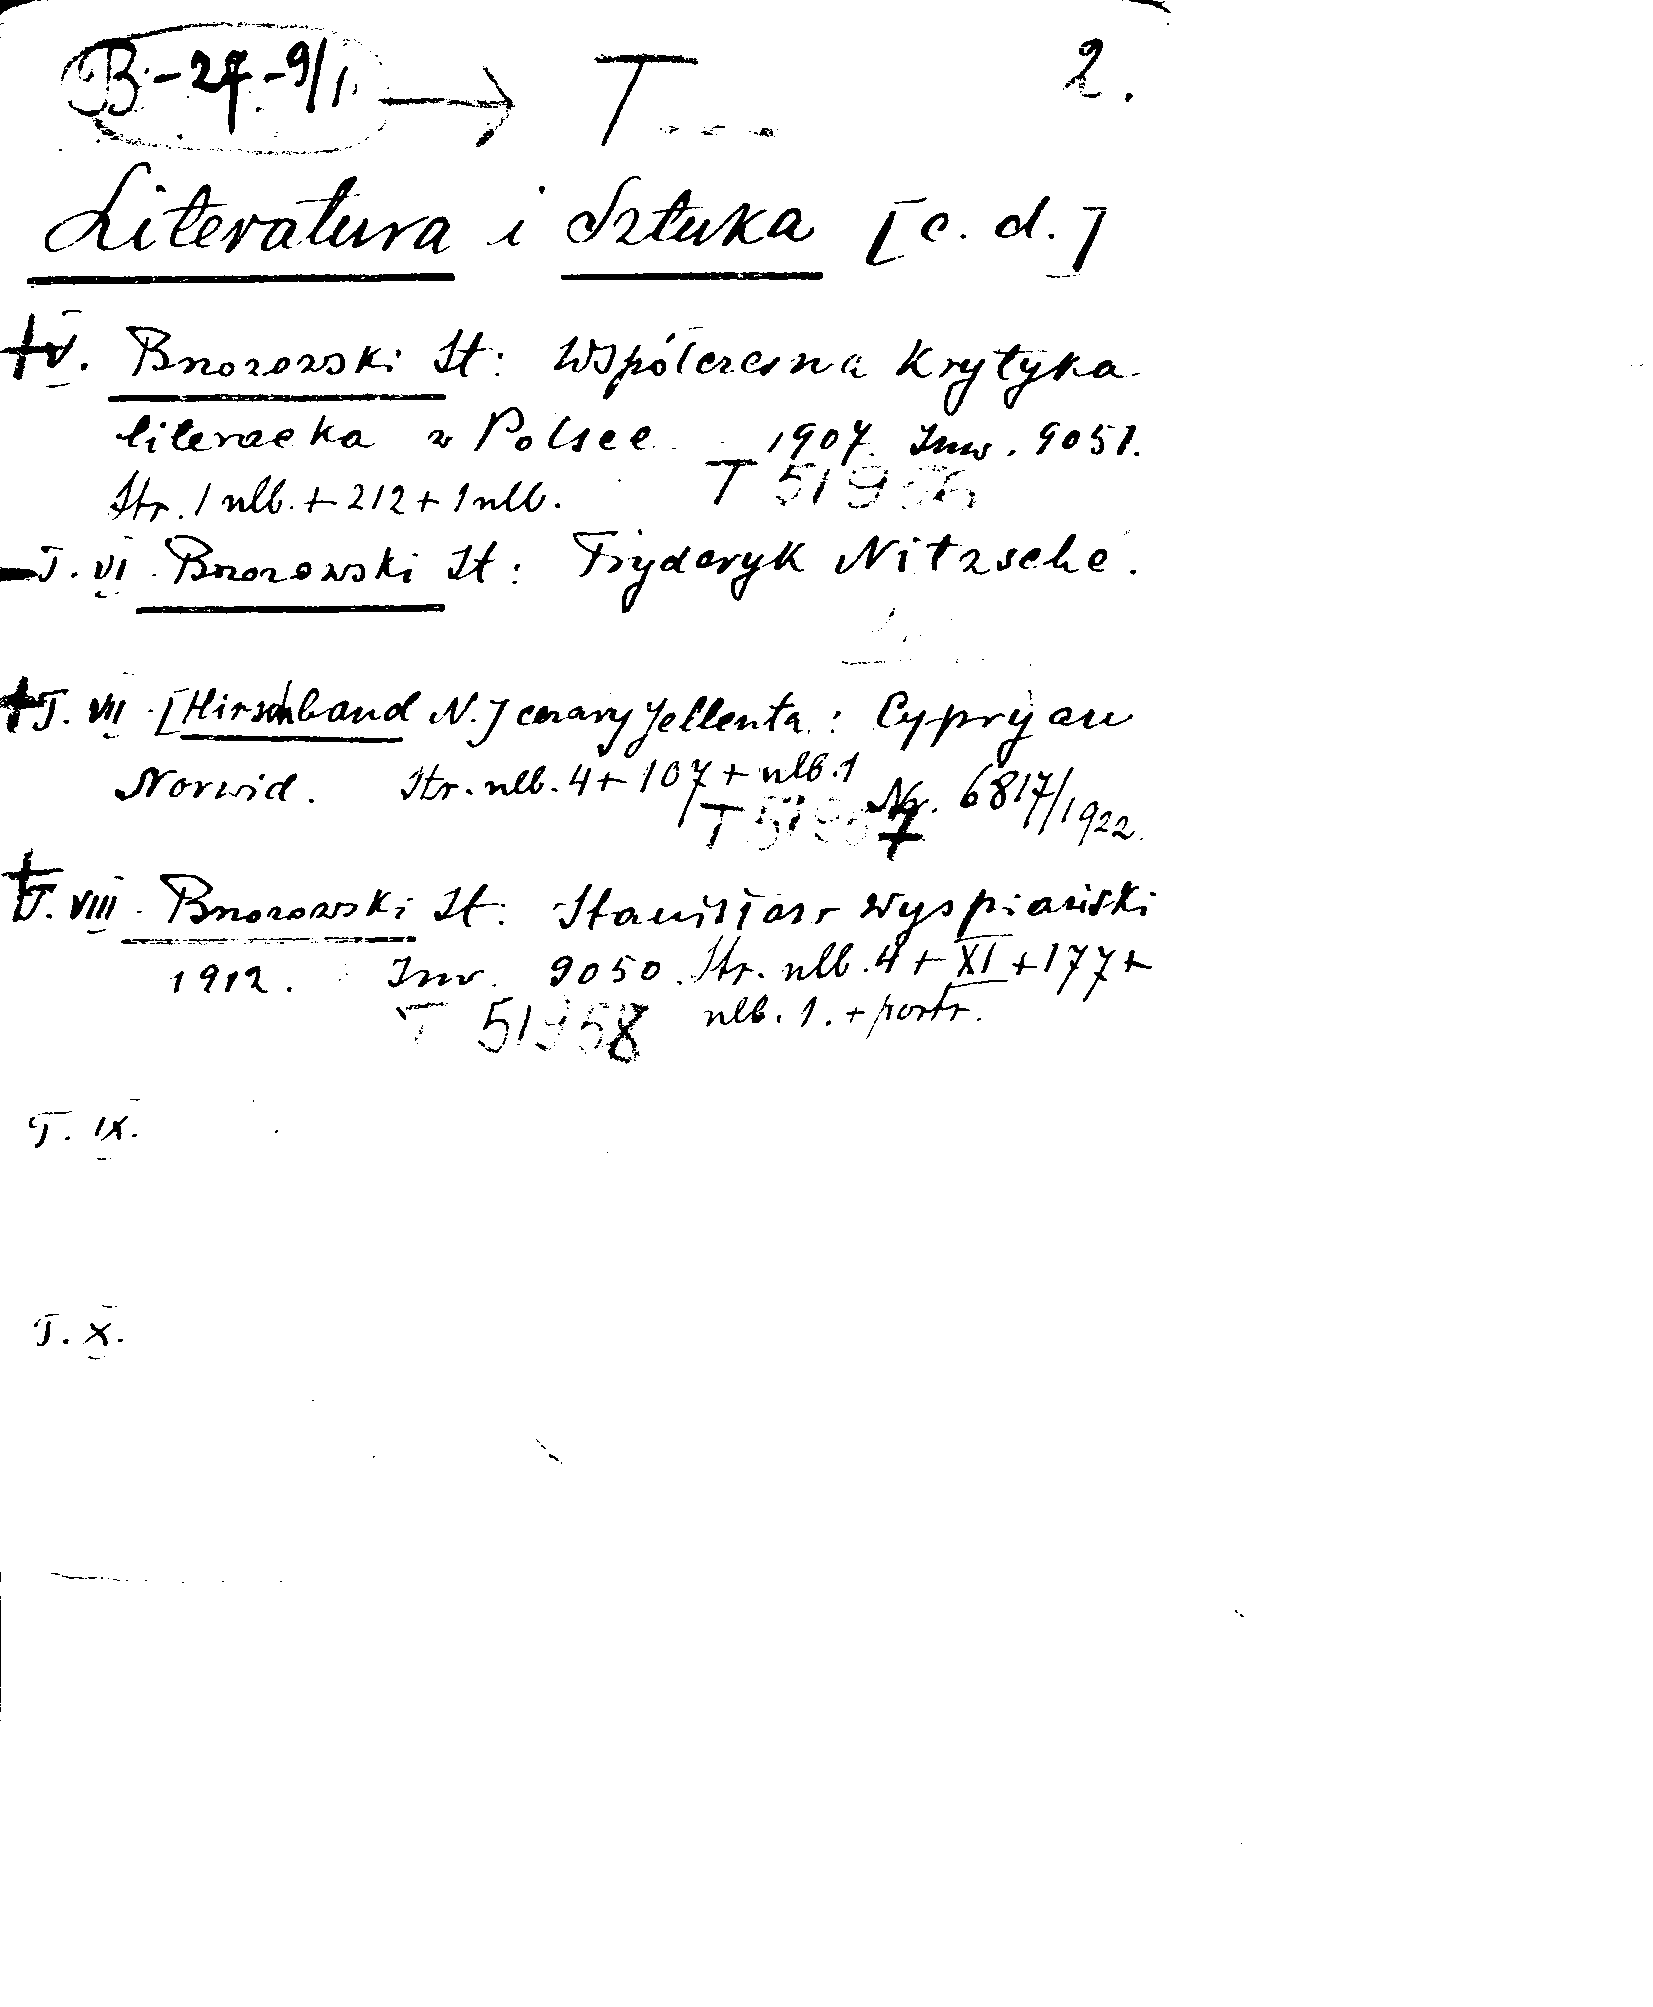 B.-27.-9/I. → T.... 2.
Literatura i Sztuka [c. d.]
+ V. Brzozowski St: Współczesna Krytyka
literacka w Polsce 1907. Inw. 9051.
Str. 1 nlb. + 212 + 1 nlb. T 51956
- T. VI. Brzozowski St: Fryderyk Nitzsche.
+ T. VII. [Hirschband N.] Cezary Jellenta: Cypryan
Norwid. Str. nlb. 4 + 107 + nlb. 1 Nr. 6817/1922
T 51957
+ T. VIII. Brzozowski St: Stanisław Wyspiański
1912. Inw. 9050. Str. nlb. 4 + XI + 177 +
T 51958 nlb. 1. + portr.
T. IX.
T. X.